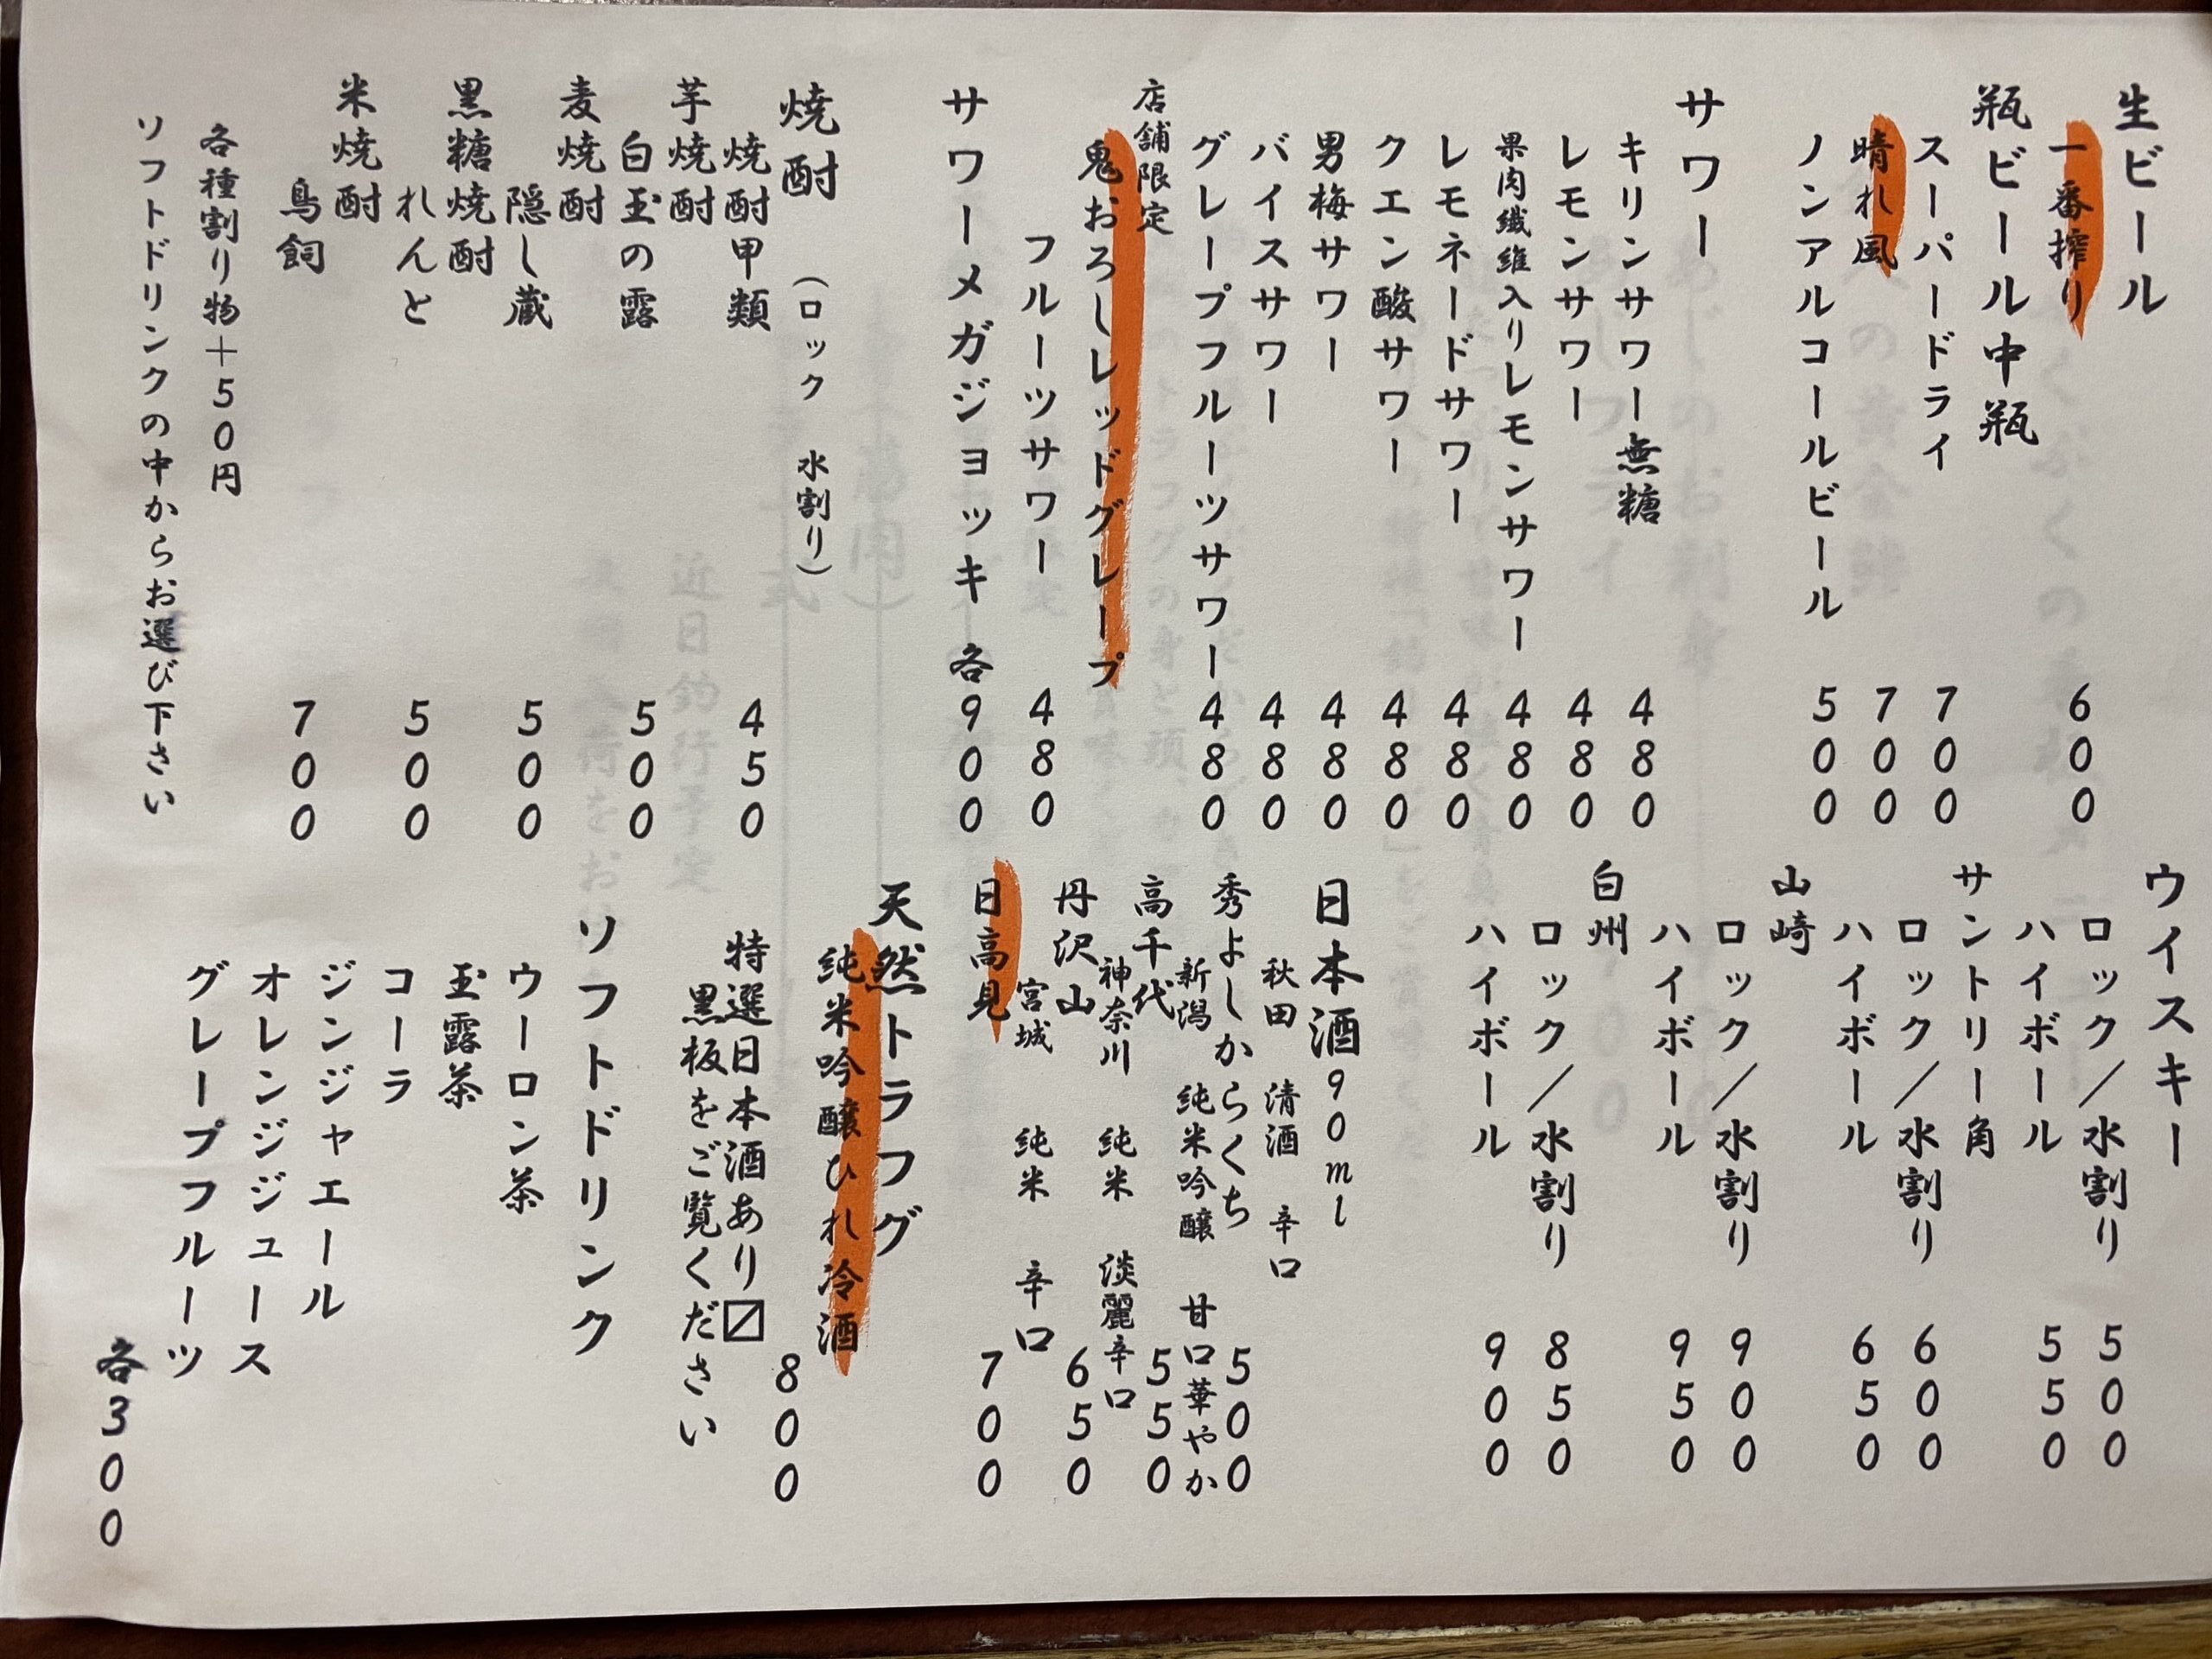 生ビール
一番搾り 600
瓶ビール中瓶
スーパードライ 700
晴れ風 700
ノンアルコールビール 500
サワー
キリンサワー無糖 480
レモンサワー 480
果肉繊維入りレモンサワー 480
レモネードサワー 480
クエン酸サワー 480
男梅サワー 480
バイスサワー 480
グレープフルーツサワー 480
店舗限定
鬼おろしレッドグレープ
フルーツサワー 480
サワーメガジョッキ 各900
焼酎 (ロック 水割り)
焼酎甲類 450
芋焼酎
白玉の露 500
麦焼酎
隠し蔵 500
黒糖焼酎
れんと 500
米焼酎
鳥飼 700
各種割り物+50円
ソフトドリンクの中からお選び下さい
ウイスキー
ロック/水割り 500
ハイボール 550
サントリー角
ロック/水割り 600
ハイボール 650
山崎
ロック/水割り 900
ハイボール 950
白州
ロック/水割り 850
ハイボール 900
日本酒90ml
秋田 清酒 辛口
秀よしからくち 500
新潟 純米吟醸 甘口華やか
高千代 550
神奈川 純米 淡麗辛口
丹沢山 650
宮城 純米 辛口
日高見 700
天然トラフグ
純米吟醸ひれ冷酒
800
特選日本酒あり〼
黒板をご覧ください
ソフトドリンク
ウーロン茶
玉露茶
コーラ
ジンジャエール
オレンジジュース
グレープフルーツ
各300